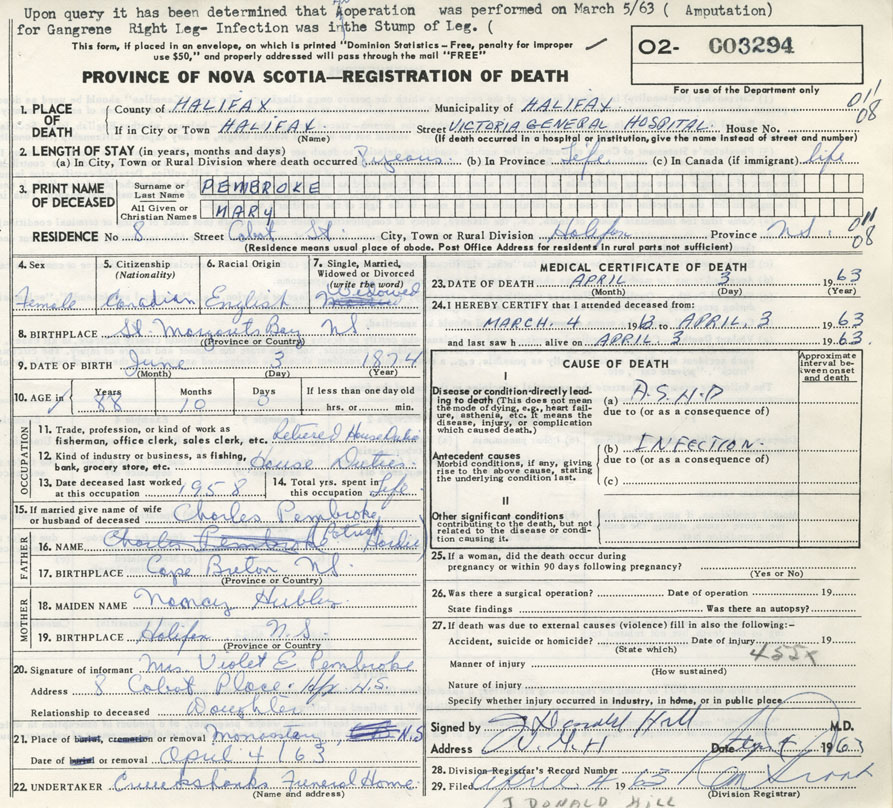 Upon query it has been determined that An operation was performed on March 5/63 ( Amputation)
for Gangrene Right Leg- Infection was in the Stump of Leg. (
This form, if placed in an envelope, on which is printed "Dominion Statistics—Free, penalty for improper
use $50," and properly addressed will pass through the mail "FREE"
O2- C03294
PROVINCE OF NOVA SCOTIA—REGISTRATION OF DEATH
For use of the Department only
1. PLACE OF DEATH
County of HALIFAX Municipality of HALIFAX 011
If in City or Town HALIFAX Street VICTORIA GENERAL HOSPITAL House No. 08
(Name) (If death occurred in a hospital or institution, give the name instead of street and number)
2. LENGTH OF STAY (in years, months and days)
(a) In City, Town or Rural Division where death occurred 8 years (b) In Province Life (c) In Canada (if immigrant) life
3. PRINT NAME OF DECEASED
Surname or Last Name PEMBROKE
All Given or Christian Names MARY
RESIDENCE No 8 Street Cabot St. City, Town or Rural Division Halifax Province N.S. 011
(Residence means usual place of abode. Post Office Address for residents in rural parts not sufficient) 08
4. Sex 5. Citizenship (Nationality) 6. Racial Origin 7. Single, Married, Widowed or Divorced (write the word)
Female Canadian English Widowed
8. BIRTHPLACE St. Margarets Bay NS
(Province or Country)
9. DATE OF BIRTH June 3 1874
(Month) (Day) (Year)
10. AGE in Years Months Days If less than one day old
88 10 0 hrs. or min.
OCCUPATION
11. Trade, profession, or kind of work as
fisherman, office clerk, sales clerk, etc. Retired House
12. Kind of industry or business, as fishing,
bank, grocery store, etc. House Duties
13. Date deceased last worked
at this occupation 1958
14. Total yrs. spent in
this occupation Life
15. If married give name of wife
or husband of deceased Charles Pembroke
FATHER
16. NAME Charles Pembroke Patrick
17. BIRTHPLACE Cape Breton NS.
(Province or Country)
MOTHER
18. MAIDEN NAME Nancy Hubley
19. BIRTHPLACE Halifax N.S.
(Province or Country)
20. Signature of informant Mrs Violet E Pembroke
Address 8 Cabot Place. Hfx N.S.
Relationship to deceased Daughter
21. Place of burial, cremation or removal N.S
Date of burial or removal April 4/63
22. UNDERTAKER Cruikshanks Funeral Home.
(Name and address)
MEDICAL CERTIFICATE OF DEATH
23. DATE OF DEATH APRIL 3 1963
(Month) (Day) (Year)
24. I HEREBY CERTIFY that I attended deceased from:
MARCH. 4 1963 to APRIL. 3 1963
and last saw h alive on APRIL 3 1963.
CAUSE OF DEATH
Approximate interval between onset and death
I
Disease or condition directly leading
to death (This does not mean
the mode of dying, e.g., heart failure,
asthenia, etc. It means the
disease, injury, or complication
which caused death.)
(a) A.S.H.D
due to (or as a consequence of)
Antecedent causes
Morbid conditions, if any, giving
rise to the above cause, stating
the underlying condition last.
(b) INFECTION.
due to (or as a consequence of)
(c)
II
Other significant conditions
contributing to the death, but not
related to the disease or condition
causing it.
25. If a woman, did the death occur during
pregnancy or within 90 days following pregnancy?
(Yes or No)
26. Was there a surgical operation? Date of operation 19
State findings Was there an autopsy?
27. If death was due to external causes (violence) fill in also the following:—
Accident, suicide or homicide? Date of injury 19
(State which) 455x
Manner of injury
(How sustained)
Nature of injury
Specify whether injury occurred in industry, in home, or in public place
Signed by J Donald Hill M.D.
Address V.G.H Date Apr 4 1963
28. Division Registrar's Record Number
29. Filed April 4 1963
(Division Registrar)
J DONALD HILL